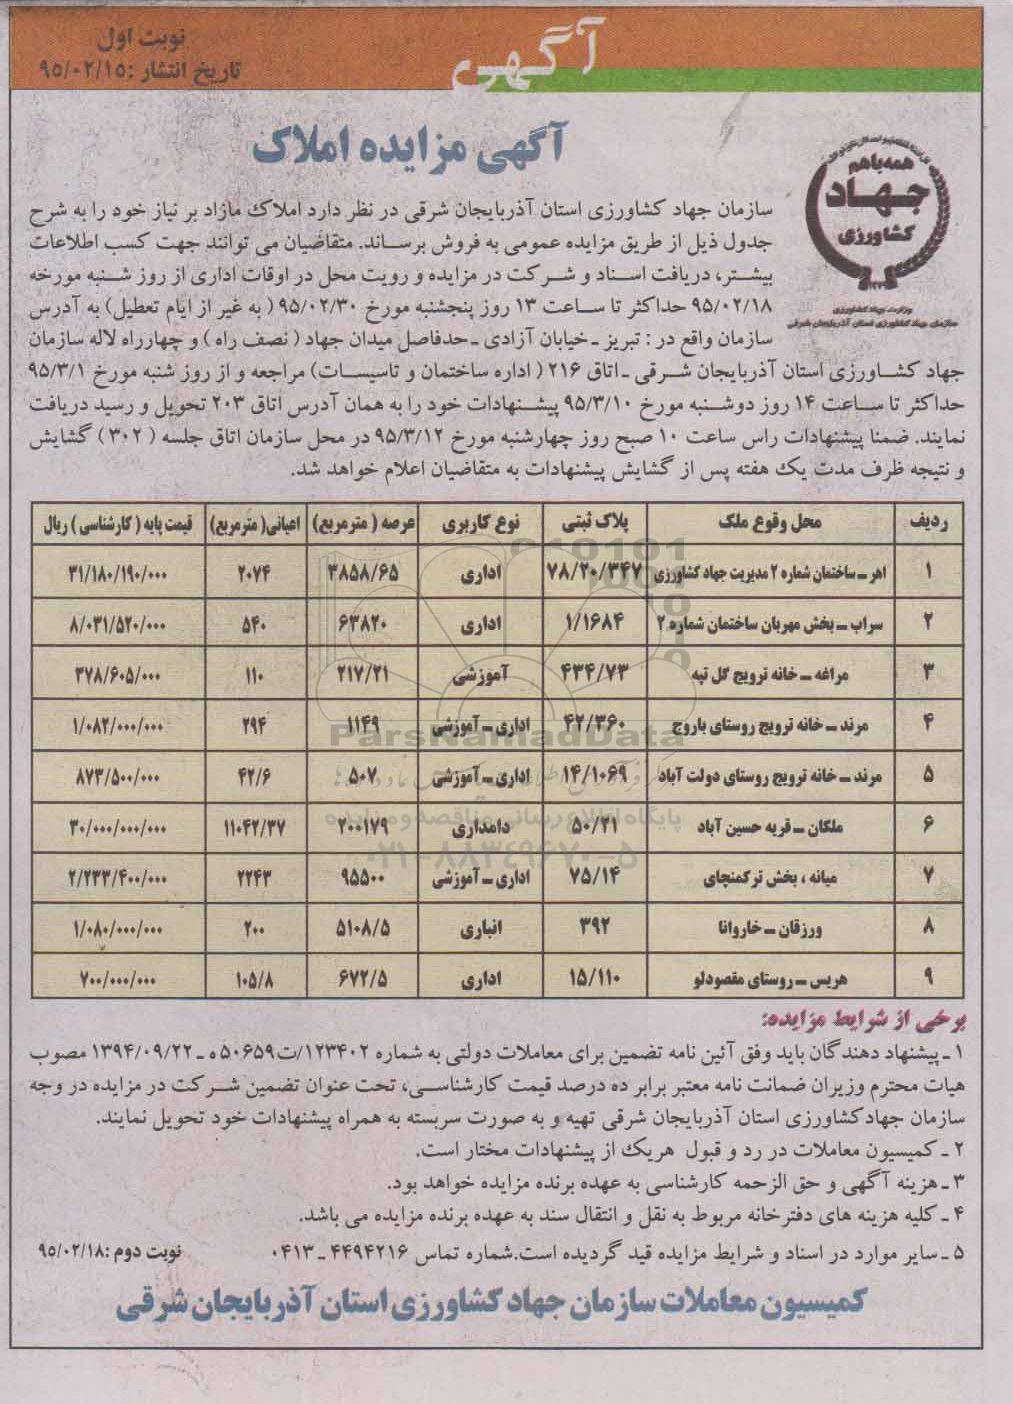 نوبت اول
تاریخ انتشار :۹۵/۰۲/۱۵
آگهی
آگهی مزایده املاک
همه با هم
جهاد
کشاورزی
وزارت جهاد کشاورزی
سازمان جهاد کشاورزی استان آذربایجان شرقی
سازمان جهاد کشاورزی استان آذربایجان شرقی در نظر دارد املاک مازاد بر نیاز خود را به شرح
جدول ذیل از طریق مزایده عمومی به فروش برساند. متقاضیان می توانند جهت کسب اطلاعات
بیشتر، دریافت اسناد و شرکت در مزایده و رویت محل در اوقات اداری از روز شنبه مورخه
۹۵/۰۲/۱۸ حداکثر تا ساعت ۱۳ روز پنجشنبه مورخ ۹۵/۰۲/۳۰ ( به غیر از ایام تعطیل) به آدرس
سازمان واقع در : تبریز ـ خیابان آزادی ـ حدفاصل میدان جهاد ( نصف راه ) و چهارراه لاله سازمان
جهاد کشاورزی استان آذربایجان شرقی ـ اتاق ۲۱۶ ( اداره ساختمان و تاسیسات) مراجعه و از روز شنبه مورخ ۹۵/۳/۱
حداکثر تا ساعت ۱۴ روز دوشنبه مورخ ۹۵/۳/۱۰ پیشنهادات خود را به همان آدرس اتاق ۲۰۳ تحویل و رسید دریافت
نمایند. ضمنا پیشنهادات راس ساعت ۱۰ صبح روز چهارشنبه مورخ ۹۵/۳/۱۲ در محل سازمان اتاق جلسه ( ۳۰۲ ) گشایش
و نتیجه ظرف مدت یک هفته پس از گشایش پیشنهادات به متقاضیان اعلام خواهد شد.
ردیف محل وقوع ملک پلاک ثبتی نوع کاربری عرصه ( مترمربع) اعیانی( مترمربع) قیمت پایه ( کارشناسی ) ریال
۱ اهر ـ ساختمان شماره ۲ مدیریت جهاد کشاورزی ۷۸/۲۰/۳۴۷ اداری ۳۸۵۸/۶۵ ۲۰۷۴ ۳۱/۱۸۰/۱۹۰/۰۰۰
۲ سراب ـ بخش مهربان ساختمان شماره ۲ ۱/۱۶۸۴ اداری ۶۳۸۲۰ ۵۴۰ ۸/۰۳۱/۵۲۰/۰۰۰
۳ مراغه ـ خانه ترویج گل تپه ۴۳۴/۷۳ آموزشی ۲۱۷/۲۱ ۱۱۰ ۳۷۸/۶۰۵/۰۰۰
۴ مرند ـ خانه ترویج روستای یاروج ۴۲/۳۶۰ اداری ـ آموزشی ۱۱۴۹ ۲۹۴ ۱/۰۸۲/۰۰۰/۰۰۰
۵ مرند ـ خانه ترویج روستای دولت آباد ۱۴/۱۰۶۹ اداری ـ آموزشی ۵۰۷ ۴۲/۶ ۸۷۳/۵۰۰/۰۰۰
۶ ملکان ـ قریه حسین آباد ۵۰/۲۱ دامداری ۲۰۰۱۷۹ ۱۱۰۴۲/۳۷ ۳۰/۰۰۰/۰۰۰/۰۰۰
۷ میانه ، بخش ترکمنچای ۷۵/۱۴ اداری ـ آموزشی ۹۵۵۰۰ ۲۲۴۳ ۲/۲۳۳/۴۰۰/۰۰۰
۸ ورزقان ـ خاروانا ۳۹۲ انباری ۵۱۰۸/۵ ۲۰۰ ۱/۰۸۰/۰۰۰/۰۰۰
۹ هریس ـ روستای مقصودلو ۱۵/۱۱۰ اداری ۶۷۲/۵ ۱۰۵/۸ ۷۰۰/۰۰۰/۰۰۰
ParsNamadData
پایگاه اطلاع رسانی مناقصه و مزایده
۰۲۱-۸۸۳۴۹۶۷۰-۵
برخی از شرایط مزایده:
۱ ـ پیشنهاد دهندگان باید وفق آئین نامه تضمین برای معاملات دولتی به شماره ۱۲۳۴۰۲/ت۵۰۶۵۹ه ـ ۱۳۹۴/۰۹/۲۲ مصوب
هیات محترم وزیران ضمانت نامه معتبر برابر ده درصد قیمت کارشناسی، تحت عنوان تضمین شرکت در مزایده در وجه
سازمان جهادکشاورزی استان آذربایجان شرقی تهیه و به صورت سربسته به همراه پیشنهادات خود تحویل نمایند.
۲ ـ کمیسیون معاملات در رد و قبول هریک از پیشنهادات مختار است.
۳ ـ هزینه آگهی و حق الزحمه کارشناسی به عهده برنده مزایده خواهد بود.
۴ ـ کلیه هزینه های دفترخانه مربوط به نقل و انتقال سند به عهده برنده مزایده می باشد.
۵ ـ سایر موارد در اسناد و شرایط مزایده قید گردیده است.شماره تماس ۴۴۹۴۲۱۶ ـ ۰۴۱۳ نوبت دوم :۹۵/۰۲/۱۸
کمیسیون معاملات سازمان جهاد کشاورزی استان آذربایجان شرقی